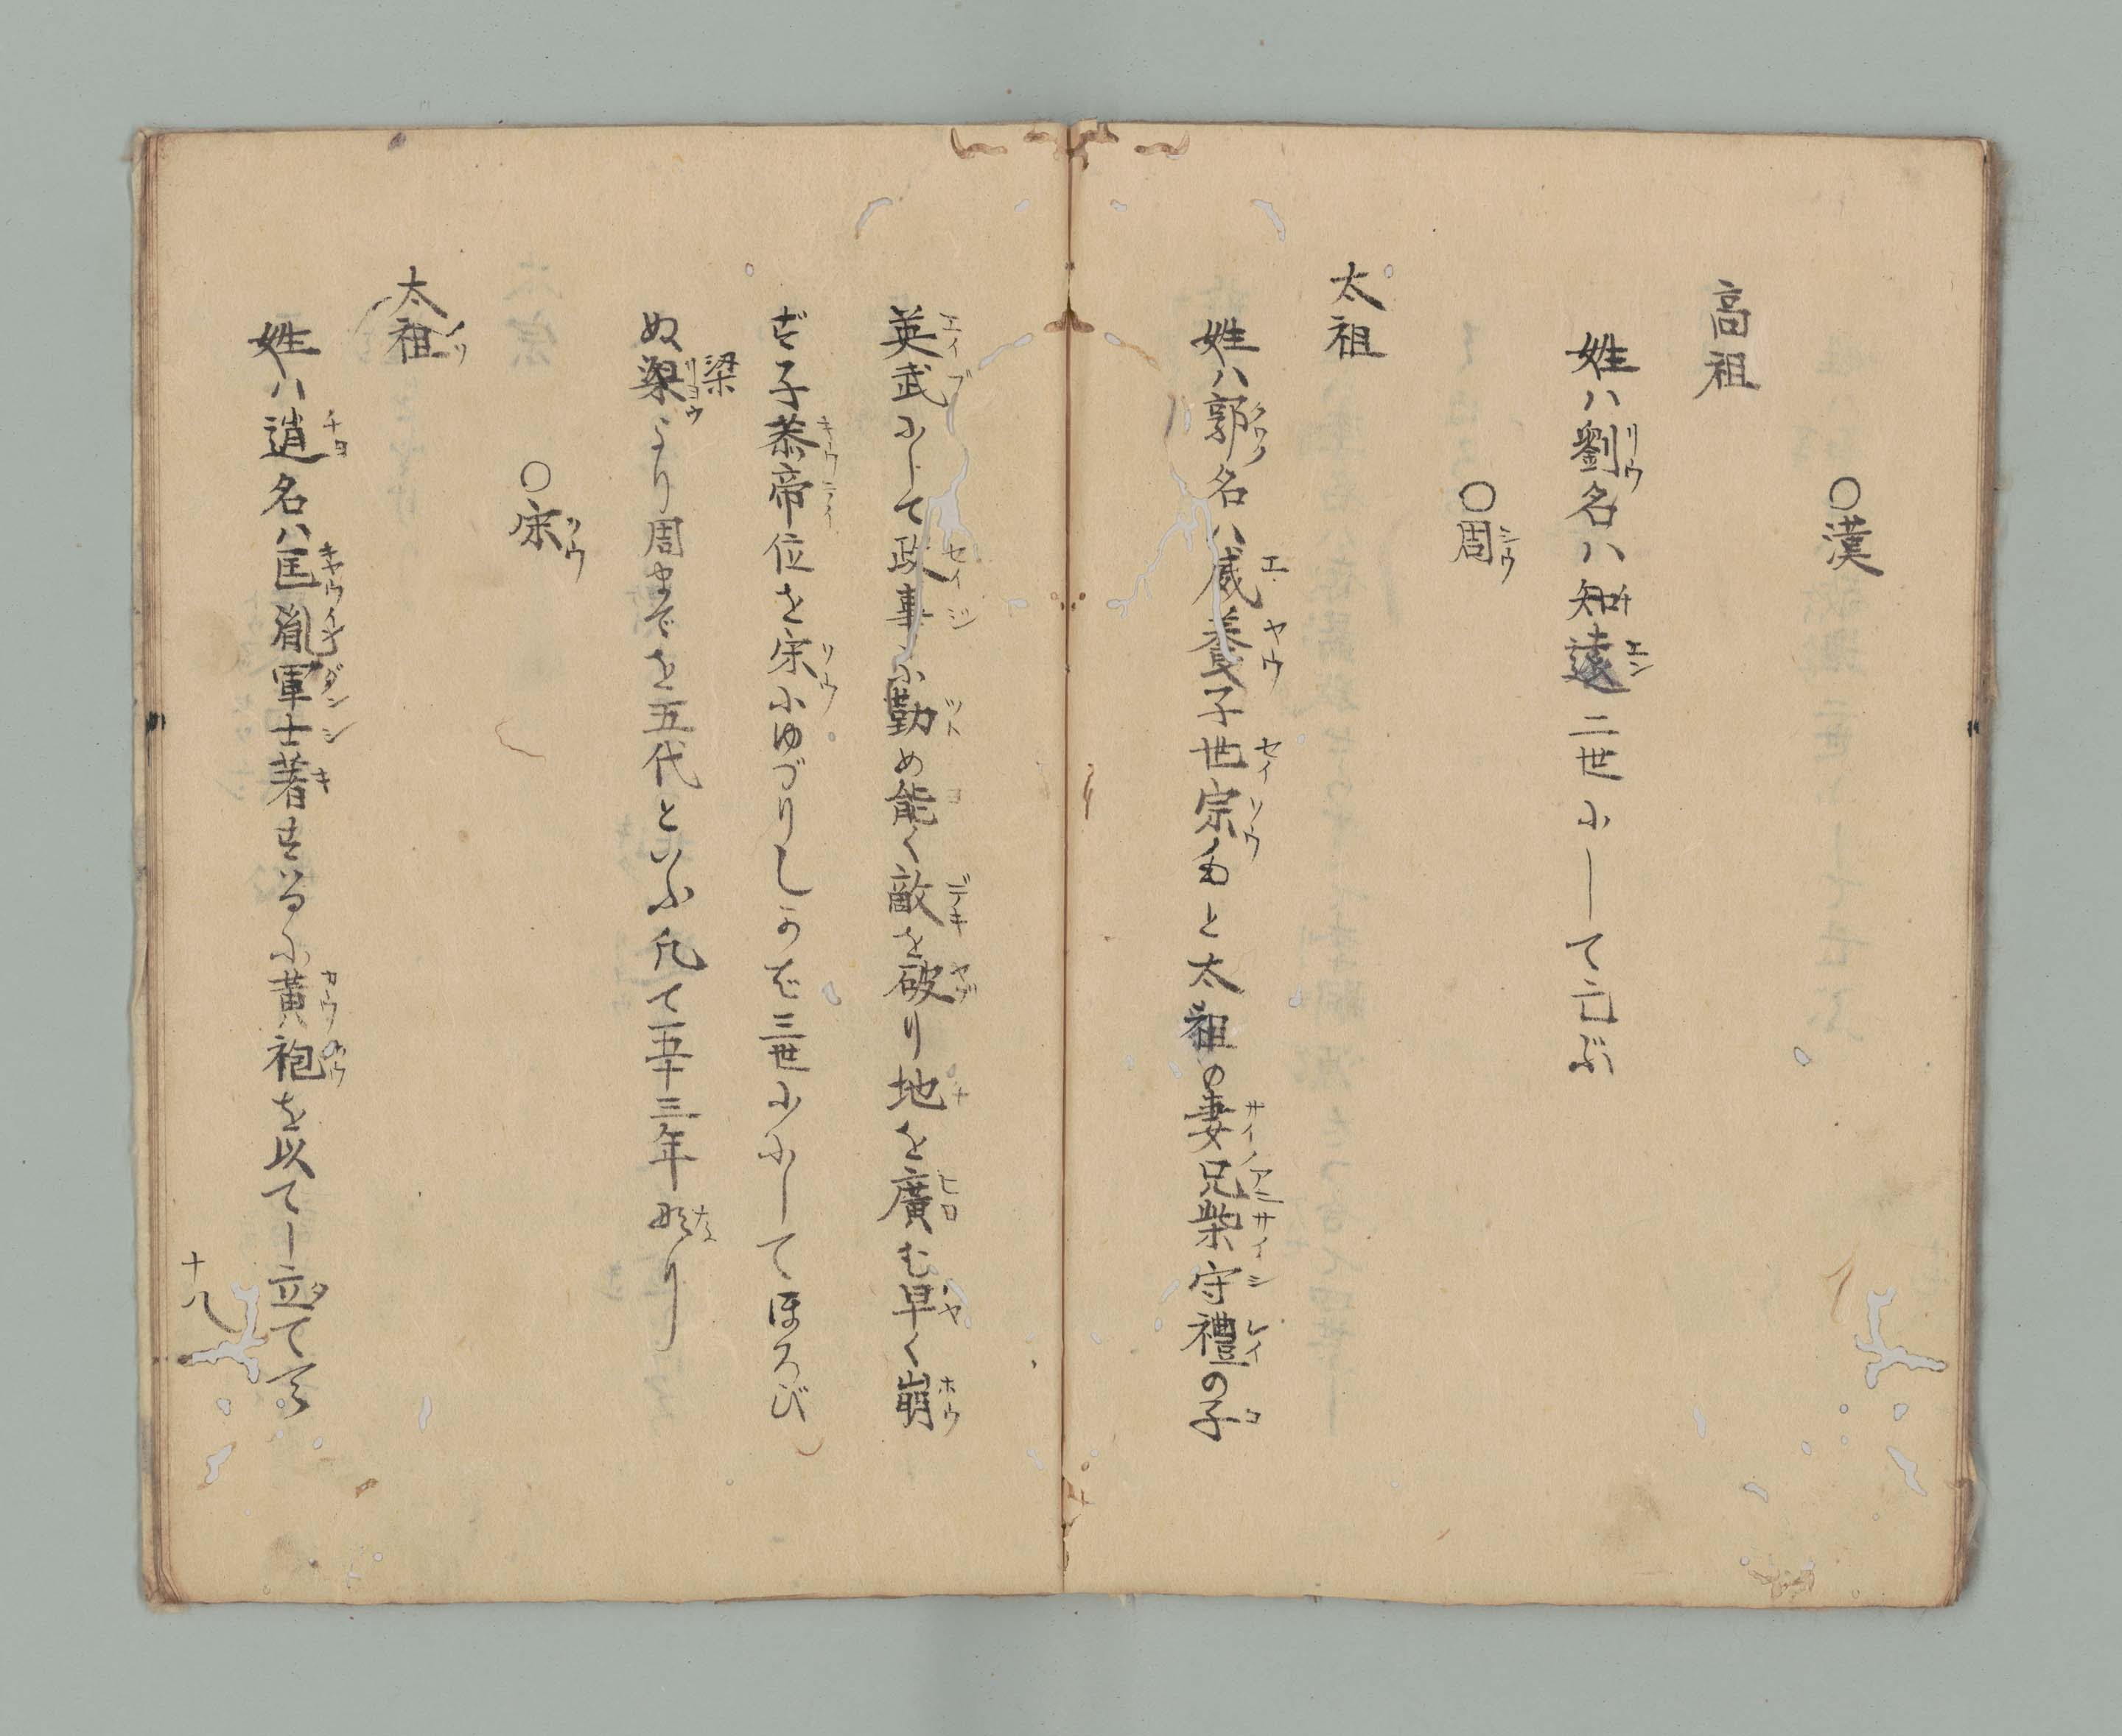 〇漢
高祖
姓ハ劉名ハ知遠二世にして亡ぶ
〇周
太祖
姓ハ郭名ハ威養子世宗もと太祖の妻兄柴守禮の子
英武にして政事に勤め能く敵を破り地を廣む早く崩
ず子恭帝位を宋にゆづりしかば三世にしてほろび
ぬ梁より周までを五代といふ凡て五十三年なり
〇宋
太祖
姓ハ逍名ハ匡胤軍士著するに黄袍を以てし立て
十八